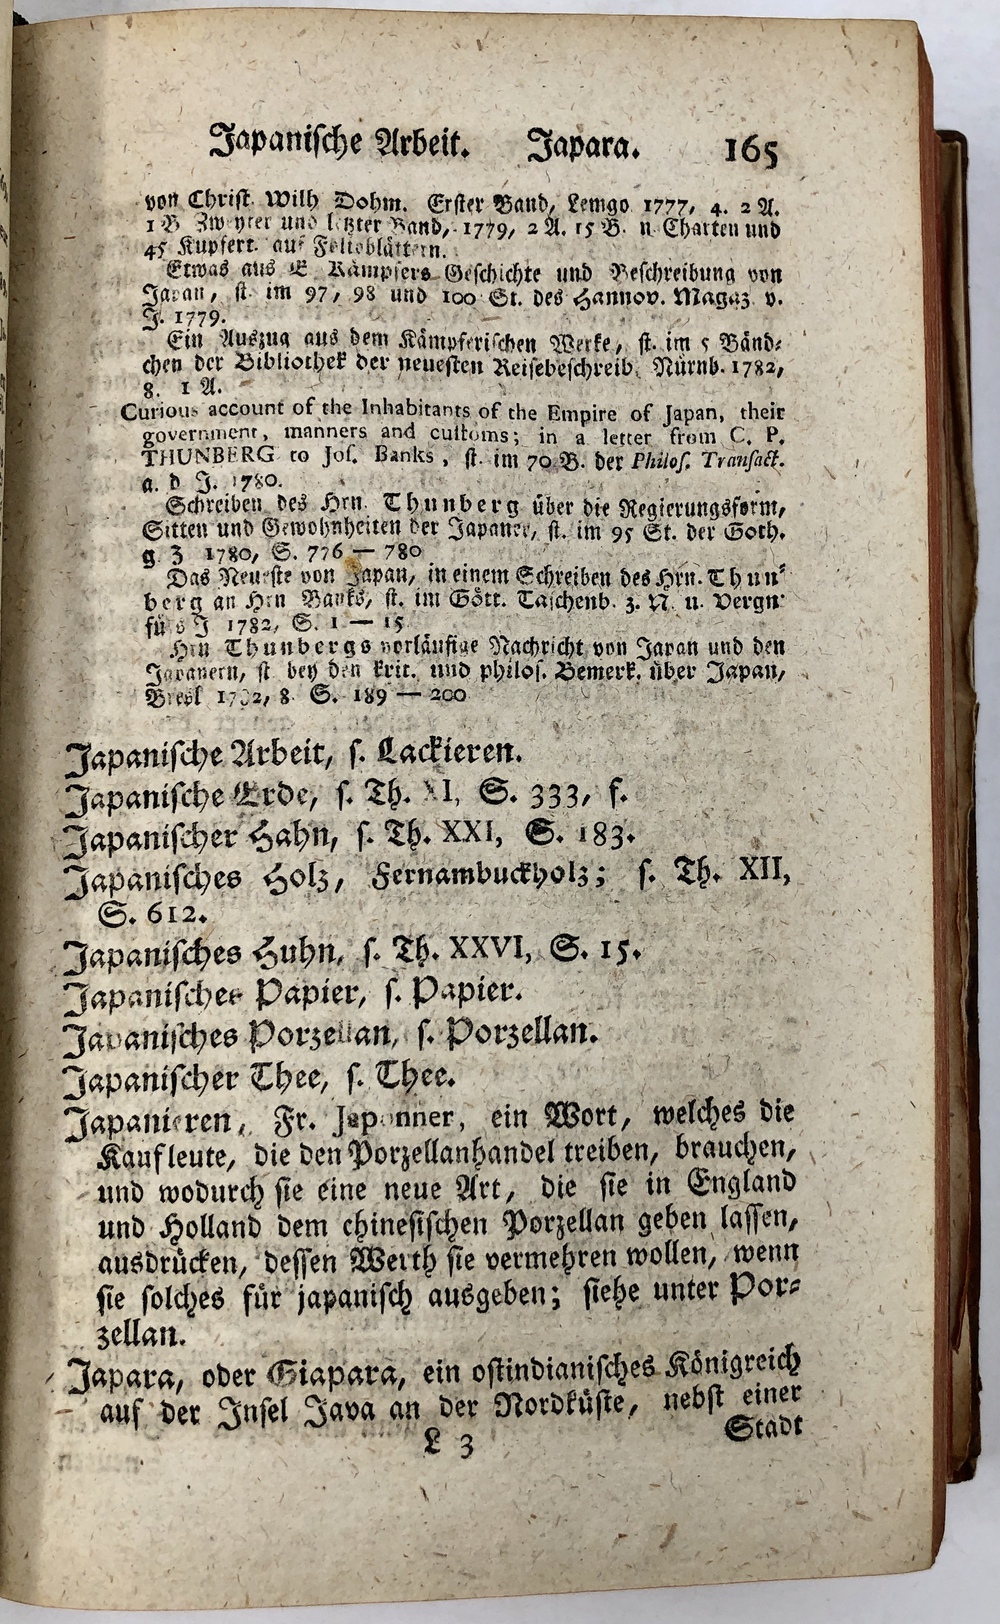 Japanische Arbeit. Japara. 165
von Christ. Wilh Dohm. Erster Band, Lemgo 1777, 4. 2 A.
1 B Zweyter und letzter Band, 1779, 2 A. 15 B. n Charten und
45 Kupfert. auf Folioblättern.
Etwas aus E Kämpfers Geschichte und Beschreibung von
Japan, st. im 97, 98 und 100 St. des Hannov. Magaz v.
J. 1779.
Ein Auszug aus dem Kämpferischen Werke, st. im 5 Bänd-
chen der Bibliothek der neuesten Reisebeschreib. Nürnb. 1782,
8. 1 A.
Curious account of the Inhabitants of the Empire of Japan, their
government, manners and customs; in a letter from C. P.
THUNBERG to Jos. Banks, st. im 70 B. der Philos. Transact.
a. d J. 1780.
Schreiben des Hrn. Thunberg über die Regierungsform,
Sitten und Gewohnheiten der Japaner, st. im 95 St. der Goth.
g. Z 1780, S. 776 — 780
Das Neueste von Japan, in einem Schreiben des Hrn. Thun-
berg an Hrn Banks, st. im Gött. Taschenb. z. N. u. Vergn.
fürs J 1782, S. 1 — 15
Hrn Thunbergs vorläufige Nachricht von Japan und den
Japanern, st bey den krit. und philos. Bemerk. über Japan,
Bresl 1782, 8. S. 189 — 200
Japanische Arbeit, s. Lackieren.
Japanische Erde, s. Th. XI, S. 333, f.
Japanischer Hahn, s. Th. XXI, S. 183.
Japanisches Holz, Fernambuckholz; s. Th. XII,
S. 612.
Japanisches Huhn, s. Th. XXVI, S. 15.
Japanisches Papier, s. Papier.
Japanisches Porzellan, s. Porzellan.
Japanischer Thee, s. Thee.
Japanieren, Fr. Japonner, ein Wort, welches die
Kaufleute, die den Porzellanhandel treiben, brauchen,
und wodurch sie eine neue Art, die sie in England
und Holland dem chinesischen Porzellan geben lassen,
ausdrücken, dessen Werth sie vermehren wollen, wenn
sie solches für japanisch ausgeben; siehe unter Por-
zellan.
Japara, oder Giapara, ein ostindianisches Königreich
auf der Insel Java an der Nordküste, nebst einer
L 3 Stadt